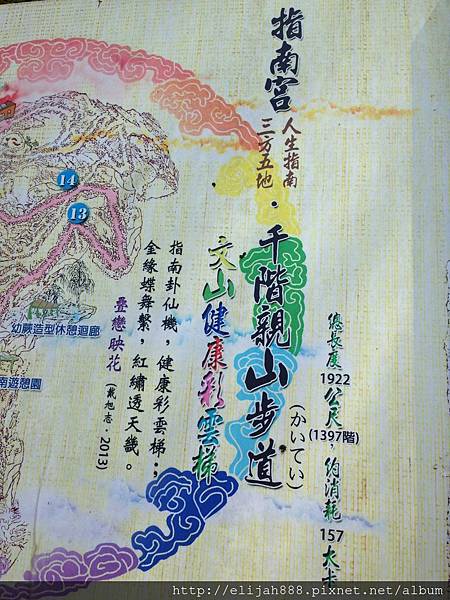 指南宮
人生指南
三方五地
・千階親山步道
(かいてい)
總長度1922公尺，約消耗157大卡
(1397階)
文山健康彩雲梯
指南卦仙機，健康彩雲梯：
金緣蝶舞繫，紅繡透天畿。
疊戀映花
(戴旭志・2013)
14
13
幼蕨造型休憩迴廊
南遊憩園
http://elijah888.pixnet.net/album